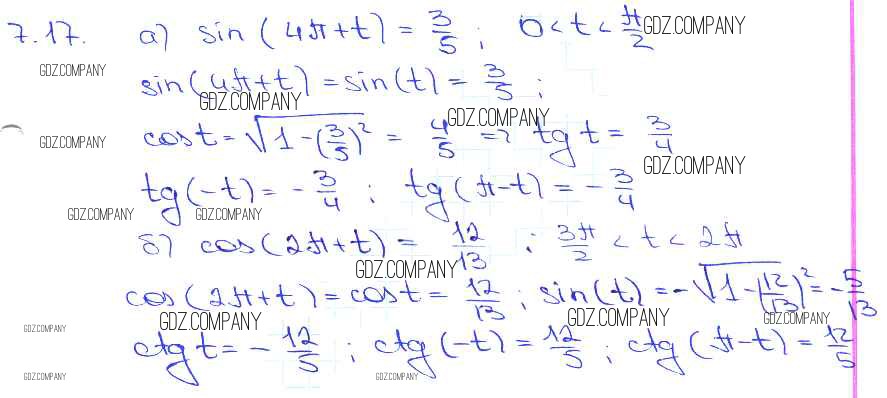 7.17. а) sin(4π+t) = 3/5; 0 < t < π/2 GDZ.COMPANY
GDZ.COMPANY
sin(4π+t) = sin(t) = 3/5;
GDZ.COMPANY
GDZ.COMPANY cos t = √(1-(3/5)²) = 4/5 => tg t = 3/4 GDZ.COMPANY
GDZ.COMPANY
tg(-t) = -3/4; tg(π-t) = -3/4
GDZ.COMPANY GDZ.COMPANY
б) cos(2π+t) = 12/13; 3π/2 < t < 2π
GDZ.COMPANY
cos(2π+t) = cos t = 12/13; sin(t) = -√(1-(12/13)²) = -5/13
GDZ.COMPANY GDZ.COMPANY GDZ.COMPANY
GDZ.COMPANY
ctg t = -12/5; ctg(-t) = 12/5; ctg(π-t) = 12/5
GDZ.COMPANY GDZ.COMPANY